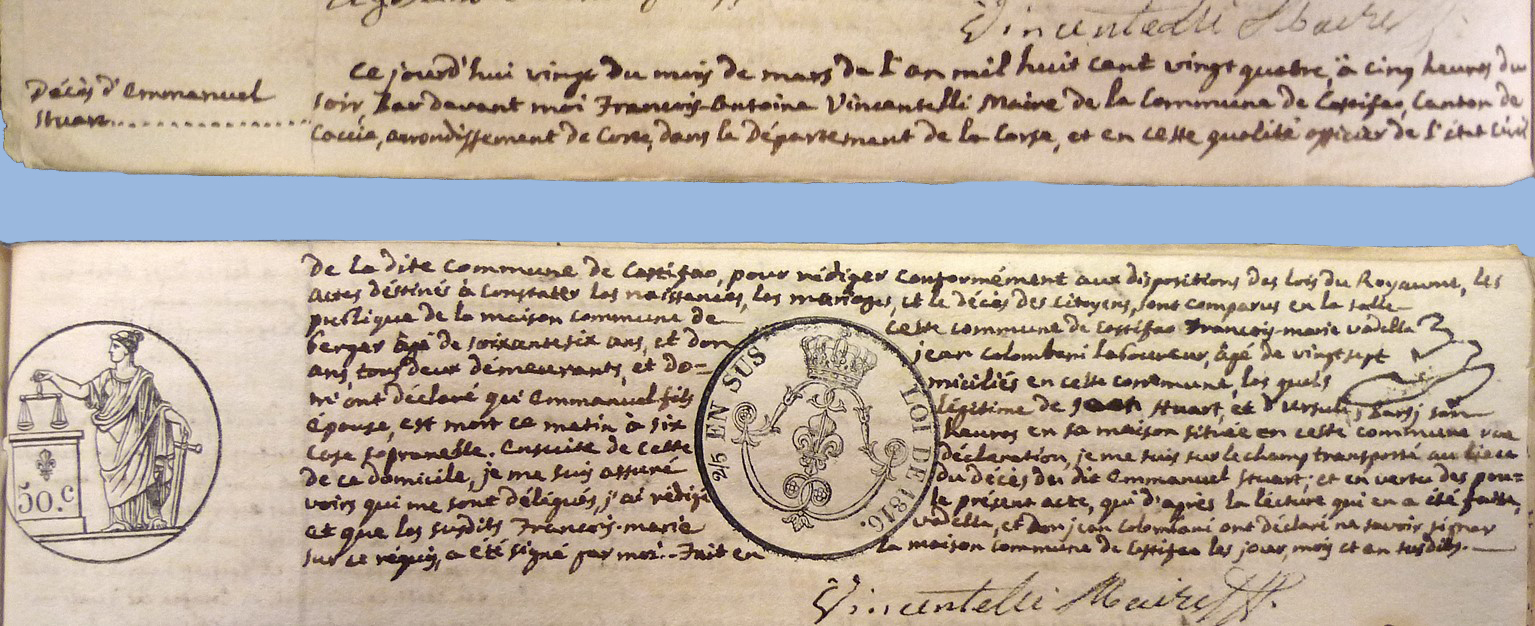 Vincentelli Maire
Décès d'Emmanuel
Stuart
Ce jourd'hui vingt du mois de mars de l'an mil huit cent vingt quatre, à cinq heures du
soir, Par devant moi François-Antoine Vincentelli Maire de la Commune de Castifao, Canton de
Caccia, arrondissement de Corte, dans le Département de la Corse, et en cette qualité officier de l'état civil
De la dite Commune de Castifao, pour rédiger conformément aux dispositions des lois du Royaume, les
actes déstinés à Constater les naissances, les mariages, et le décès des Citoyens, sont comparus en la salle
publique de la maison commune de cette commune de Castifao François-marie vadella
berger âgé de soixante six ans, et don jean Colombani laboureur, âgé de vingt sept
ans, tous deux démeurants, et do= miciliés en cette commune, les quels
m'ont déclaré qu'Emmanuel fils légitime de Jean Stuart, et d'Ursule, son
épouse, est mort ce matin à six heures en sa maison située en cette commune rue
Case sopranelle. Ensuite de Cette déclaration, je me suis sur le champ transporté au lieu
de ce domicile, je me suis assuré du décès du dit Emmanuel Stuart; et en vertu des pou=
voirs qui me sont délégués, j'ai rédigé le présent acte, qui d'après la lecture qui en a été faite,
et que les susdits François-marie vadella, et don jean Colombani ont déclaré ne savoir signer
sur ce réquis, a été signé par moi.- Fait en la maison commune de Castifao les jour, mois et an susdits.
50.C
2/5 EN SUS
LOI DE 1816.
Vincentelli Maire